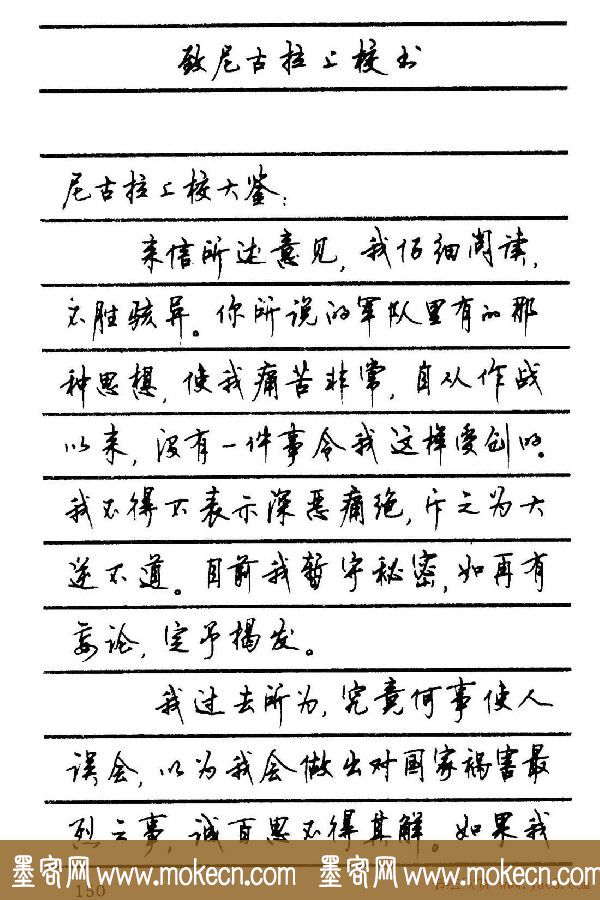 致尼古拉上校书
尼古拉上校大鉴：
来信所述意见，我仔细阅读，
不胜骇异。你所说的军队里有的那
种思想，使我痛苦非常，自从作战
以来，没有一件事令我这样受创的。
我不得不表示深恶痛绝，斥之为大
逆不道。目前我暂守秘密，如再有
妄论，定予揭发。
我过去所为，究竟何事使人
误会，以为我会做出对国家祸害最
烈之事，诚百思不得其解。如果我
墨客网 www.mokecn.com 墨客网 www.mokecn.com
150